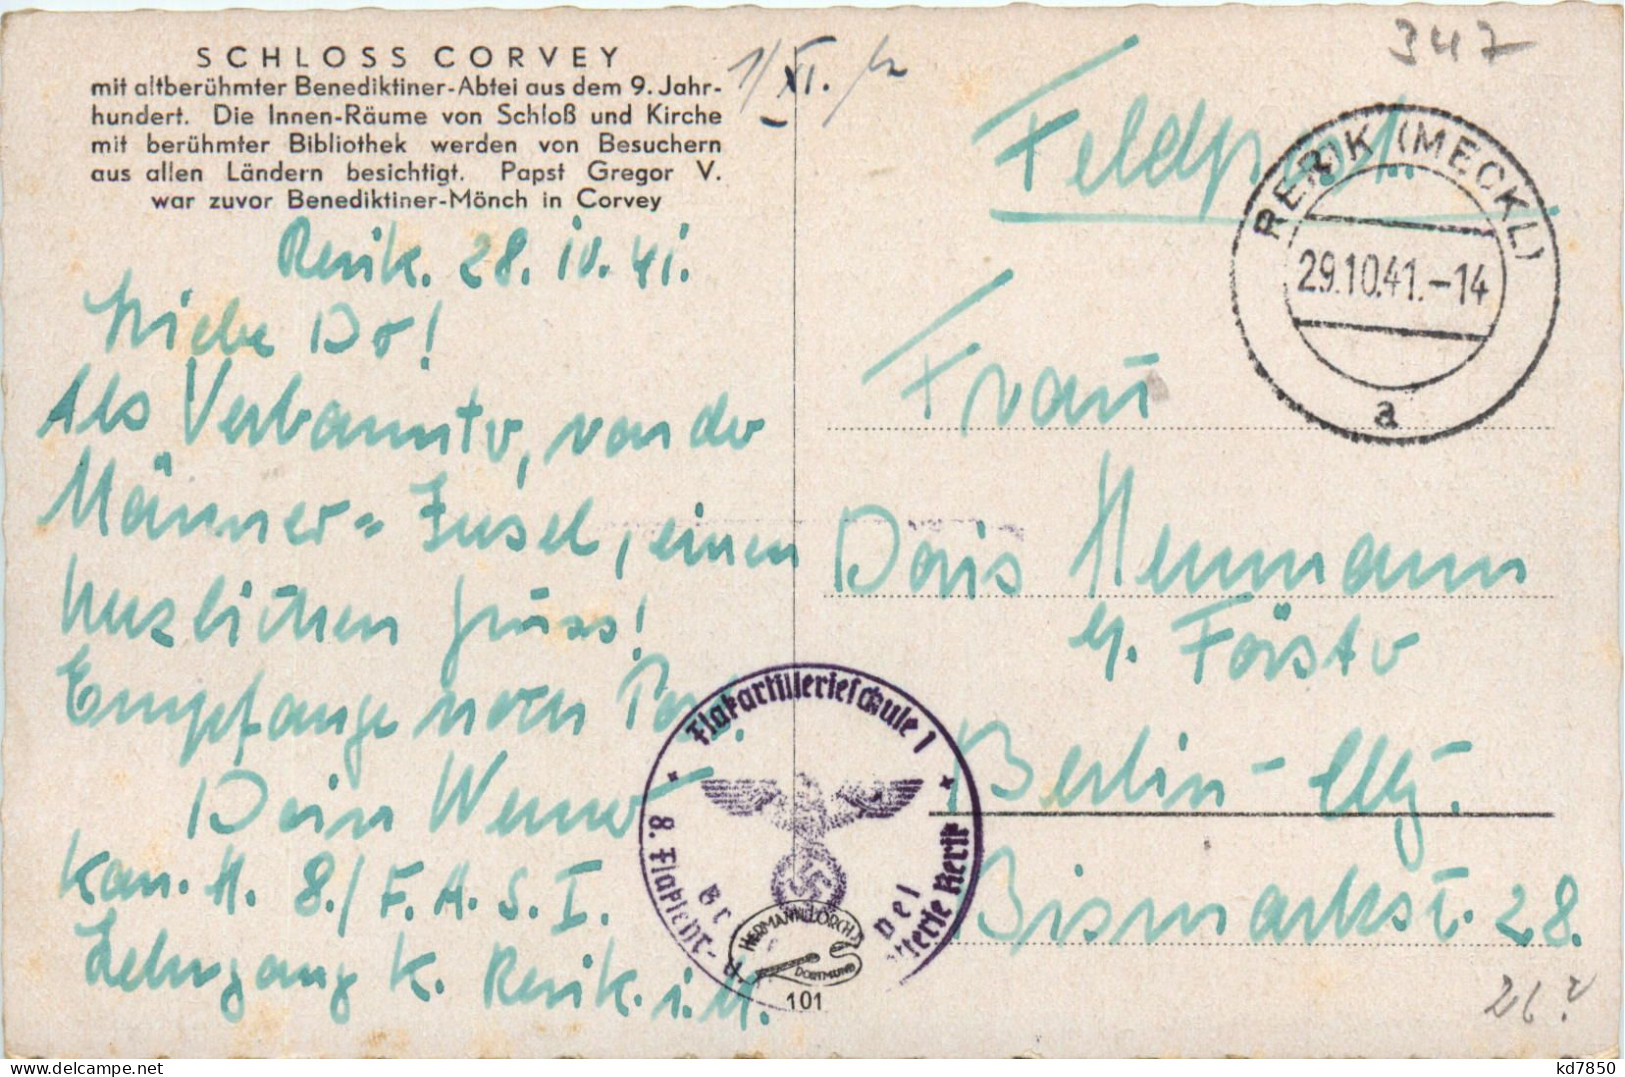 SCHLOSS CORVEY
mit altberühmter Benediktiner-Abtei aus dem 9. Jahr-
hundert. Die Innen-Räume von Schloß und Kirche
mit berühmter Bibliothek werden von Besuchern
aus allen Ländern besichtigt. Papst Gregor V.
war zuvor Benediktiner-Mönch in Corvey
Rerik. 28. IV. 41.
Liebe Do!
Als Verbannter, von der
Männer-Insel, einen
herzlichen Gruss!
Empfange noch Post.
Dein Werner
Kan. H. 8./F.A.S.I.
Lehrgang K. Rerik. i. M.
347
Feldpost.
RERIK (MECKL)
29.10.41.-14
a
Frau
Doris Heumann
Förster
Berlin-
Bismarckst. 28.
26?
Flakartillerieschule 1
Briefstempel
HERMANN LORCH
DORTMUND
101
kd7850